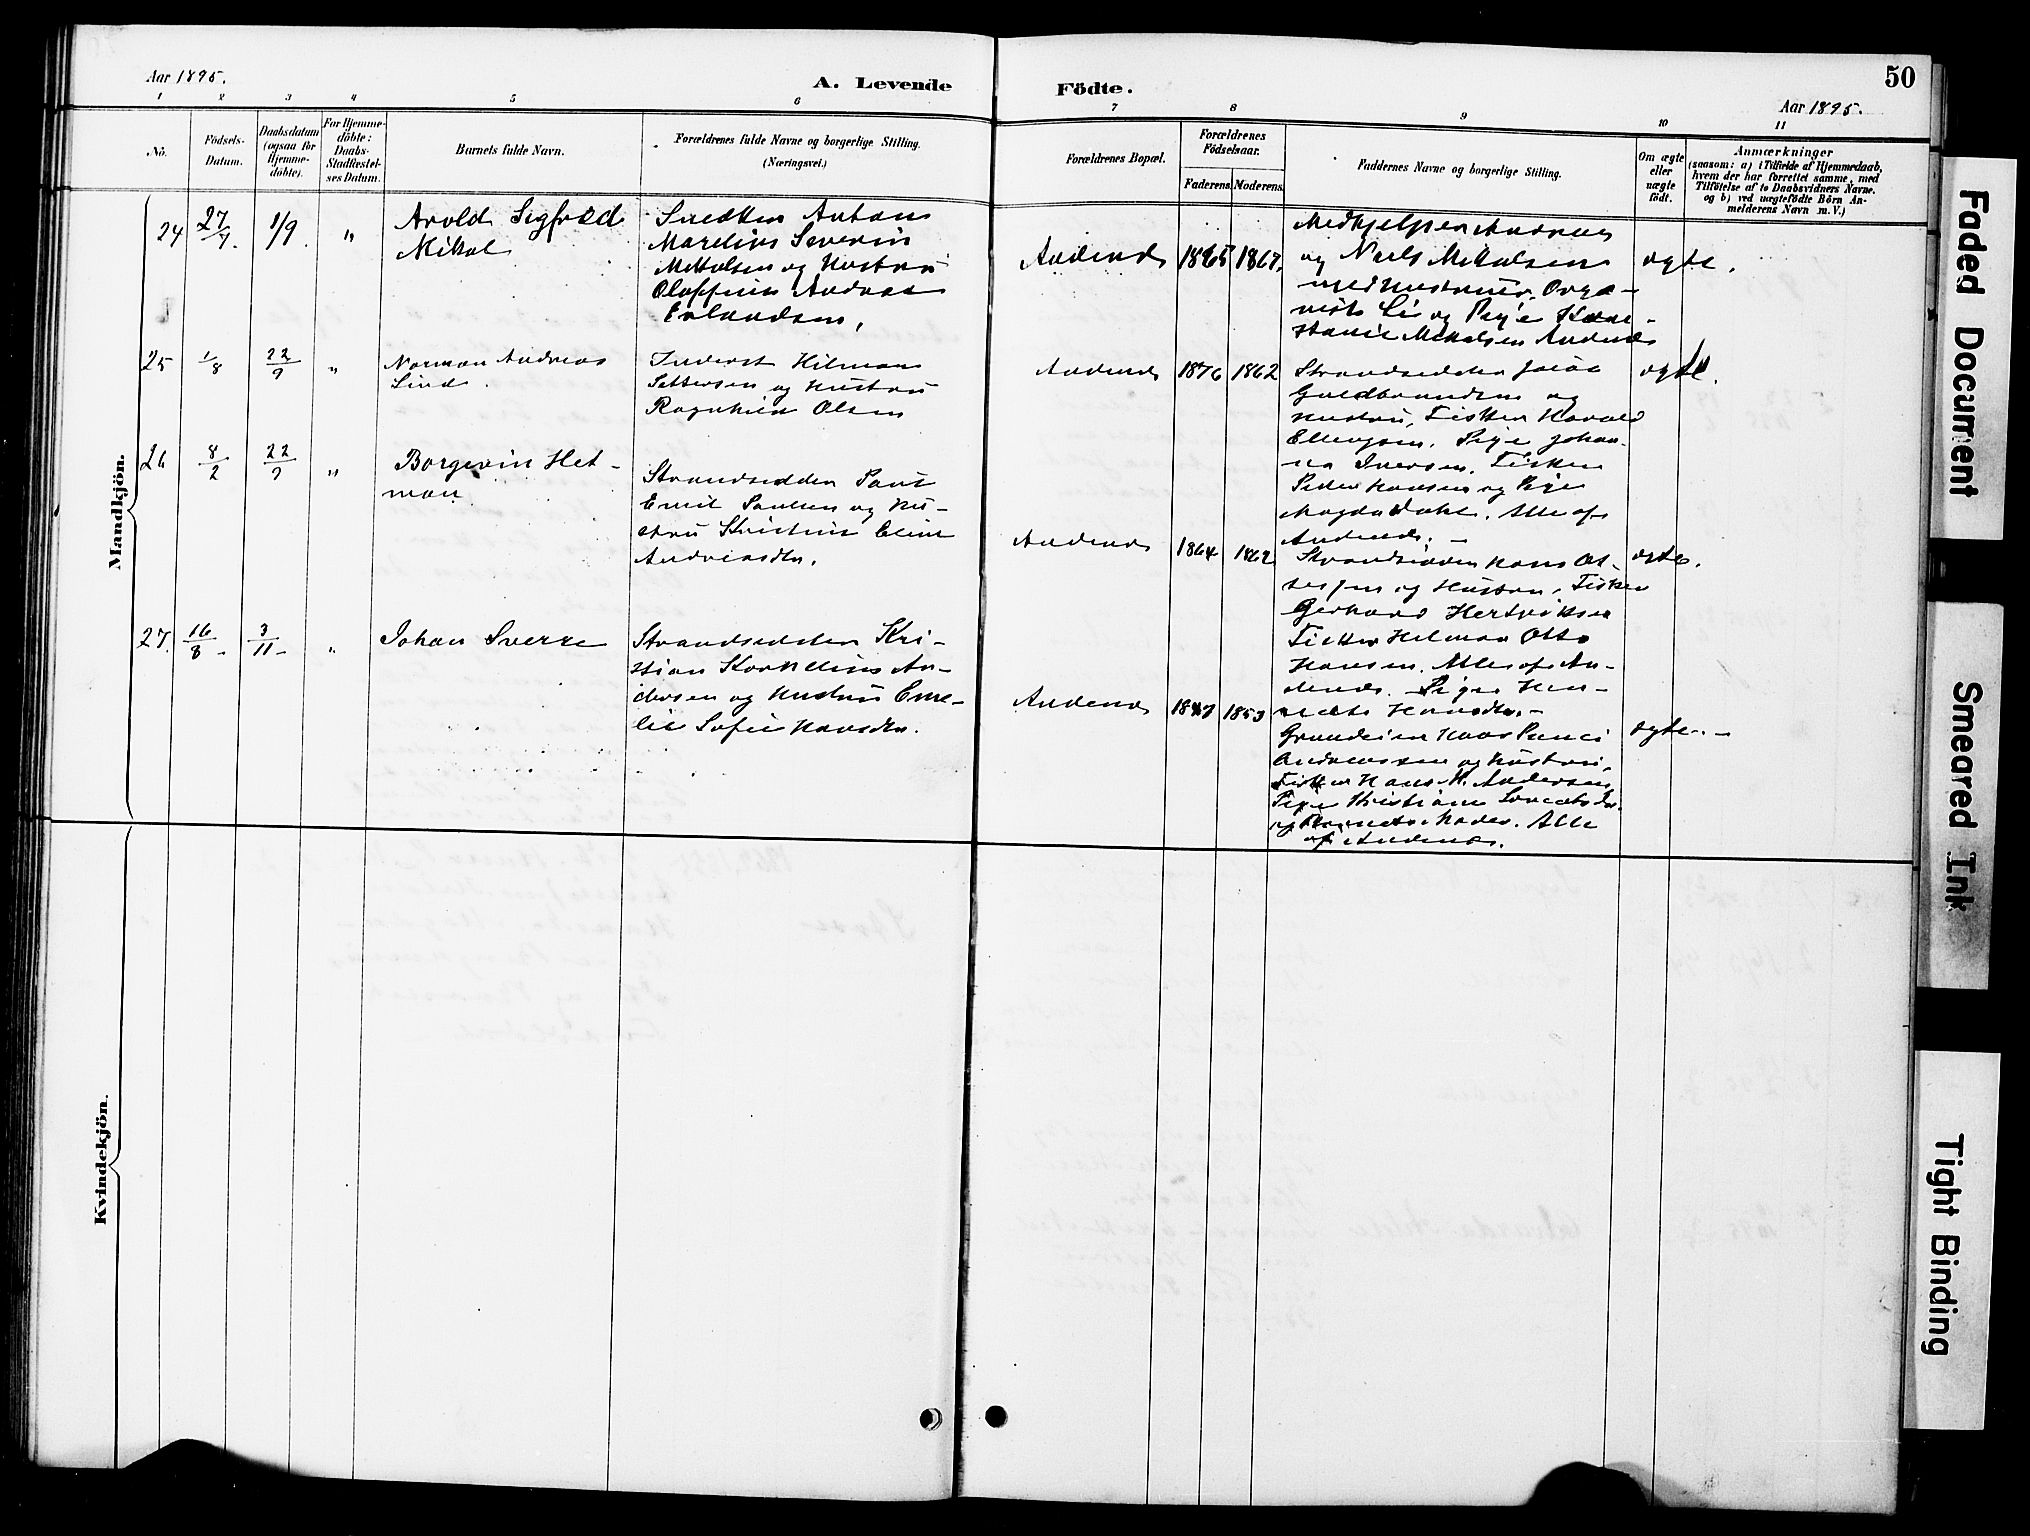 Aar 1895.
A. Levende
Födte.
50
Aar 1895.
1 2 3 4 5 6 7 8 9 10 11
No.
Födsels-
Datum.
Daabsdatum
(ogsaa for
Hjemme-
döbte).
For Hjemme-
döbte:
Daabs-
Stadfæstel-
ses Datum.
Barnets fulde Navn.
Forældrenes fulde Navne og borgerlige Stilling.
(Næringsvei.)
Forældrenes Bopæl.
Forældrenes
Födselsaar.
Faderens. Moderens.
Faddernes Navne og borgerlige Stilling.
Om ægte
eller
uægte
födt.
Anmærkninger
(saasom: a) i Tilfælde af Hjemmedaab,
hvem der har forrettet samme, med
Tilföielse af to Daabsvidners Navne.
og b) ved uægtefödte Börn An-
melderens Navn m. V.)
Mandkjön.
24
27/7.
1/9.
"
Arold Sigfred
Mikal
Snedker Antan
Marelius Severin
Mikalsen og Hustru
Oluffine Andrea
Erlandsen,
Andenæs
1865
1867.
Medhjelper Andreas
og Niels Mikalsen
med Hustruer, Orga-
nist Li og Pige Kon-
stanse Mikalsen Andenæs
ægte.
25
1/8
22/9
"
Norman Andreas
Lind
Inderst Hilmar
Pettersen og Hustru
Ragnhild Olsen
Andenæs
1876
1862
Strandsidder Jakob
Guldbrandsen og
Hustru, Fisker Harald
Ellingsen, Pige Johan-
na Iversen, Fisker
Peder Hansen og Pige
Magda Dahl. Alle af
Andenæs. -
ægte.
26
8/2
22/9
"
Borgevin Het-
man
Strandsidder Paul
Emil Paulsen og Hu-
stru Kristine Eline
Andreasdtr.
Andenæs
1864
1862
Strandsidder Hans Ot-
tesen og Hustru, Fisker
Gerhard Hertviksen
Fisker Hilmar Otto
Hansen. Alle af An-
denæs. Pige Hen-
Hansdtr. -
ægte.
27.
16/8 -
3/11 -
"
Johan Sverre
Strandsidder Kri-
stian Kornelius An-
dersen og Hustru Eme-
lie Sofie Hansdtr.
Andenæs
1853
Grundeier Hans
Andreassen og Hustru,
Fisker Hans M. Andersen
Pige Kristiane
og Barnets Moder. Alle
af Andenæs.
ægte. -
Kvindekjön.
Faded Document
Smeared Ink
Tight Binding